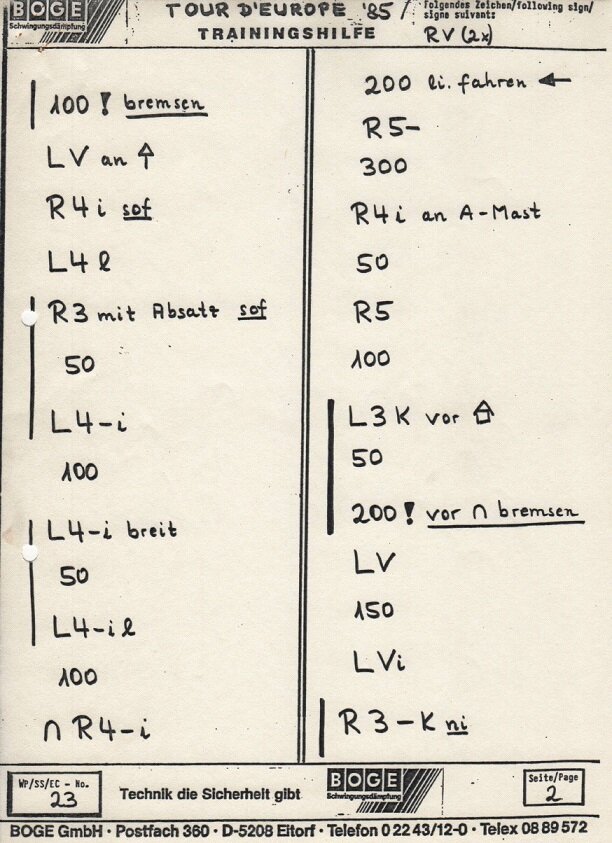 BOGE
Schwingungsdämpfung
TOUR D'EUROPE '85 /
TRAININGSHILFE
Folgendes Zeichen/following sign/
signe suivant:
RV (2x)
100 ! bremsen
LV an ↑
R4i sof
L4 l
R3 mit Absatz sof
50
L4-i
100
L4-i breit
50
L4-il
100
∩ R4-i
200 li. fahren ←
R5-
300
R4i an A-Mast
50
R5
100
L3K vor
50
200! vor ∩ bremsen
LV
150
LVi
R3-K ni
WP/SS/EC - No.
23
Technik die Sicherheit gibt
BOGE
Schwingungsdämpfung
Seite/Page
2
BOGE GmbH · Postfach 360 · D-5208 Eitorf · Telefon 0 22 43/12-0 · Telex 08 89 572